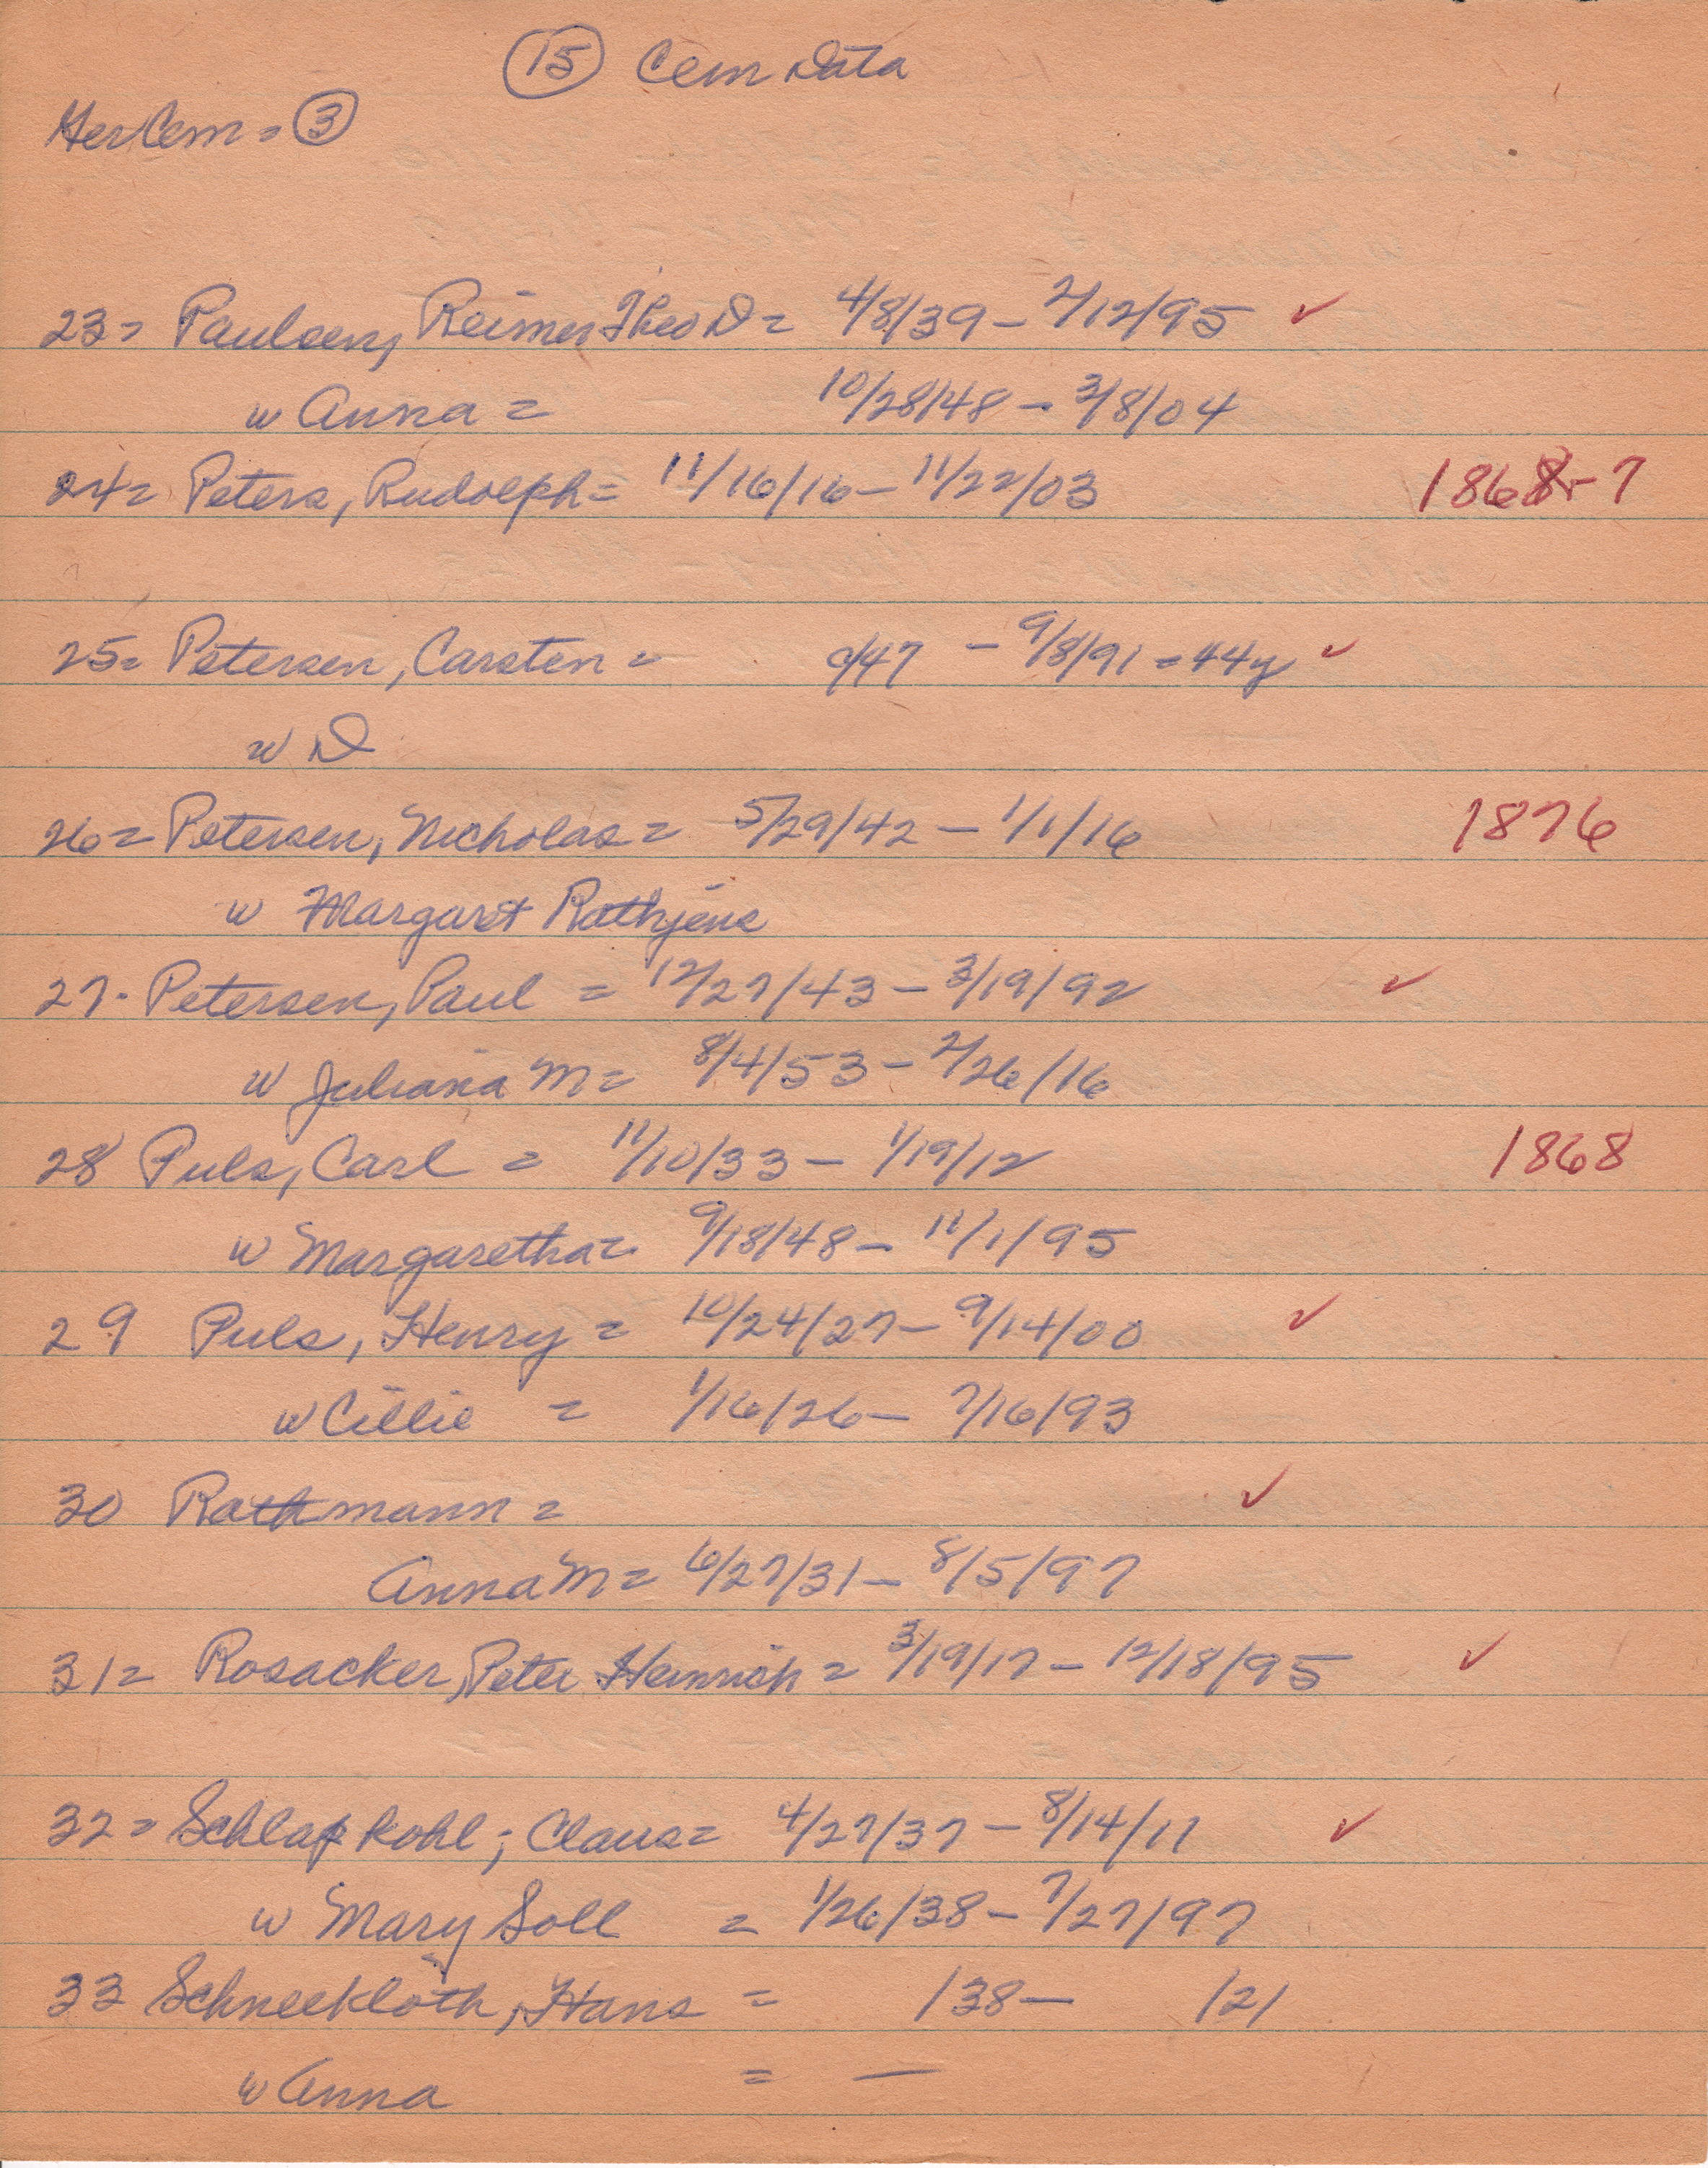 15 Cem Data
Ger Cem = 3
23 = Paulsen, Reimer Theo D = 4/8/39 - 2/12/95 ✓
w Anna = 10/28/48 - 3/8/04
24 = Peters, Rudolph = 11/16/16 - 11/22/03 1868-7
25 = Petersen, Carsten = c/47 - 9/8/91 = 44y ✓
w D
26 = Petersen, Nicholas = 5/29/42 - 1/1/16 1876
w Margaret Rathjens
27 - Petersen, Paul = 12/27/43 - 3/19/92 ✓
w Juliana M = 8/4/53 - 2/26/16
28 Puls, Carl = 11/10/33 - 1/19/12 1868
w Margaretha = 9/18/48 - 11/1/95
29 Puls, Henry = 10/24/27 - 9/14/00 ✓
w Cillie = 1/16/26 - 7/16/93
30 Rathmann = ✓
Anna M = 6/27/31 - 8/5/97
31 = Rosacker, Peter Heinrich = 3/19/17 - 12/18/95 ✓
32 = Schlapkohl; Claus = 4/27/37 - 8/14/11 ✓
w Mary Soll = 1/26/38 - 7/27/97
33 Schneekloth, Hans = /38 - /21
w Anna = —